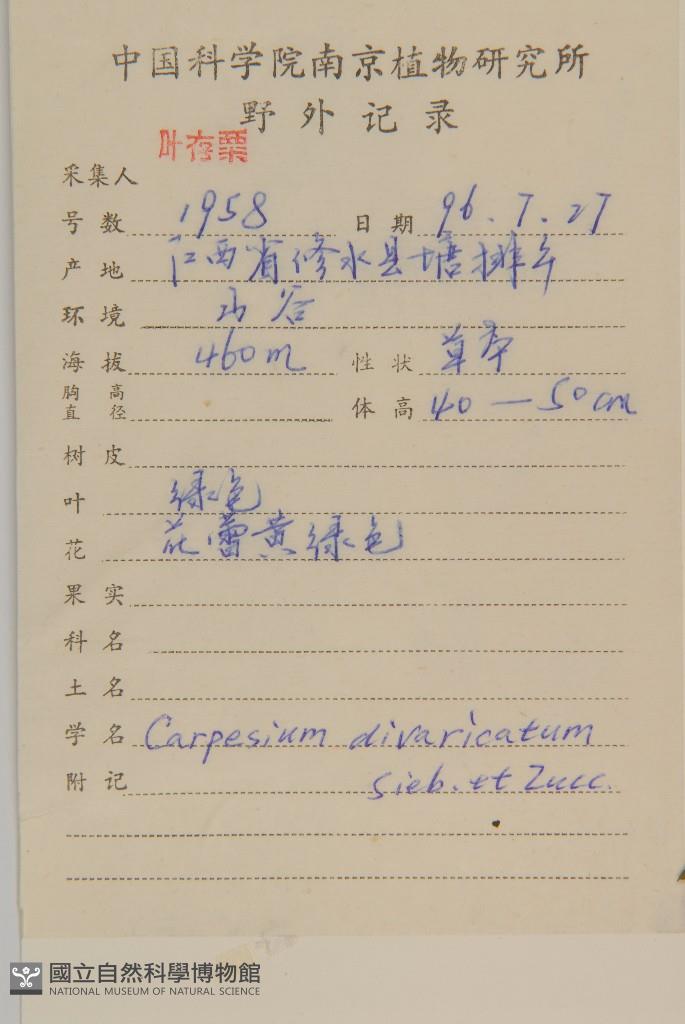 中国科学院南京植物研究所
野外记录
叶存粟
采集人
号数 1958 日期 96.7.27
产地 江西省修水县塘排乡
环境 山谷
海拔 460m 性状 草本
胸高直径 体高 40—50cm
树皮
叶 绿色
花 花蕾黄绿色
果实
科名
土名
学名 Carpesium divaricatum
附记 Sieb. et Zucc.
國立自然科學博物館
NATIONAL MUSEUM OF NATURAL SCIENCE